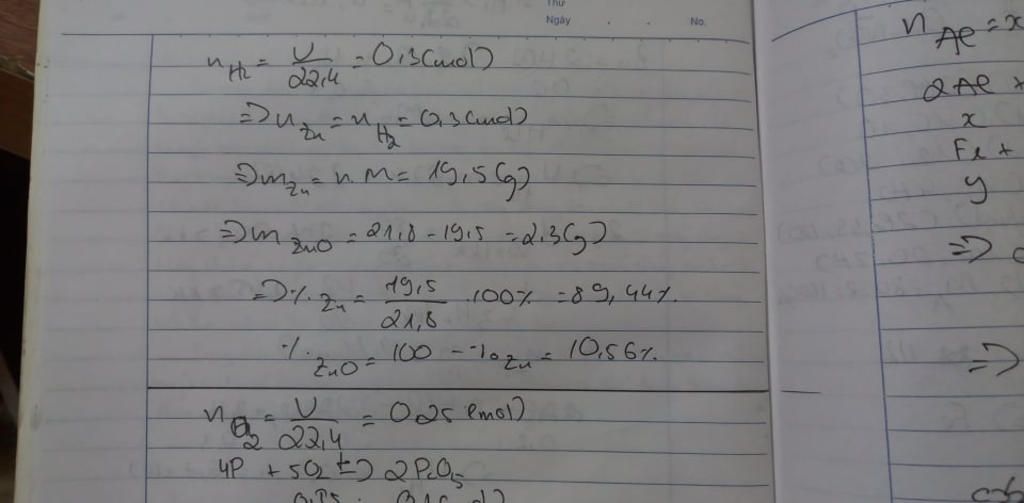 Thứ
Ngày . . No.
n H₂ = V/22,4 = 0,3 (mol)
=> n Zn = n H₂ = 0,3 (mol)
=> m Zn = n. M = 19,5 (g)
=> m ZnO = 21,8 - 19,5 = 2,3 (g)
=> %. Zn = 19,5/21,8 .100% = 89,44%.
%. ZnO = 100 - % Zn = 10,56%.
n O₂ = V/22,4 = 0,25 (mol)
4P + 5O₂ t=> 2P₂O₅
n Al = x
2Al +
x
Fe +
y
=>
=>